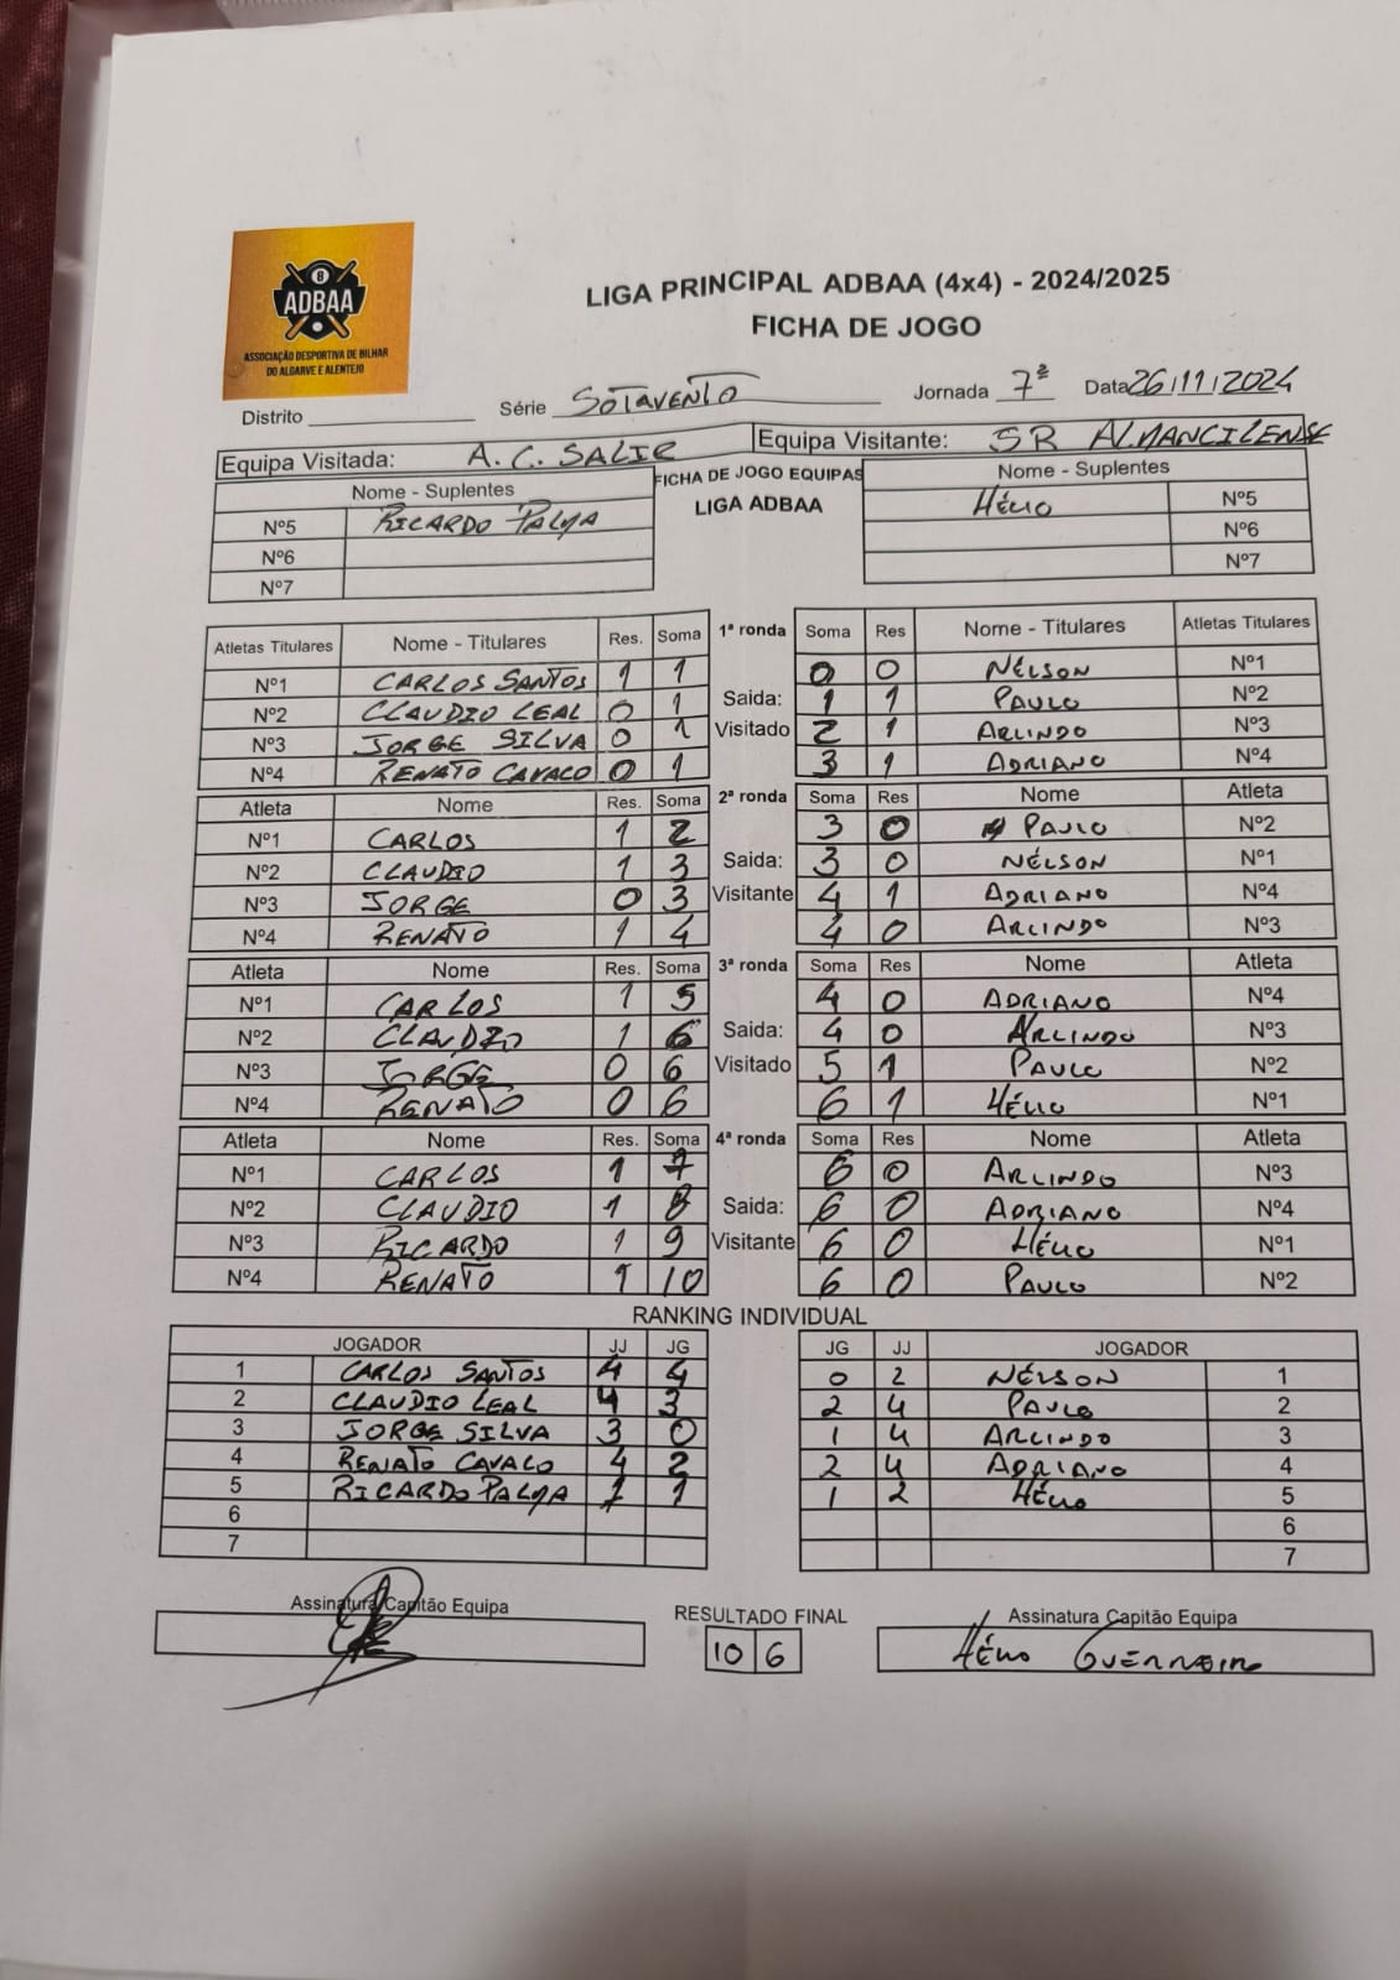 8
ADBAA
ASSOCIAÇÃO DESPORTIVA DE BILHAR
DO ALGARVE E ALENTEJO
LIGA PRINCIPAL ADBAA (4x4) - 2024/2025
FICHA DE JOGO
Distrito Série SOTAVENTO Jornada 7ª Data 26/11/2024
Equipa Visitada: A.C. SALIR Equipa Visitante: SR ALMANCILENSE
Nome - Suplentes FICHA DE JOGO EQUIPAS Nome - Suplentes
Nº5 RICARDO PALMA LIGA ADBAA HÉLIO Nº5
Nº6 Nº6
Nº7 Nº7
Atletas Titulares Nome - Titulares Res. Soma 1ª ronda Soma Res Nome - Titulares Atletas Titulares
Nº1 CARLOS SANTOS 1 1 0 0 NÉLSON Nº1
Nº2 CLAUDIO LEAL 0 1 Saida: 1 1 PAULO Nº2
Nº3 JORGE SILVA 0 1 Visitado 2 1 ARLINDO Nº3
Nº4 RENATO CAVACO 0 1 3 1 ADRIANO Nº4
Atleta Nome Res. Soma 2ª ronda Soma Res Nome Atleta
Nº1 CARLOS 1 2 3 0 PAULO Nº2
Nº2 CLAUDIO 1 3 Saida: 3 0 NÉLSON Nº1
Nº3 JORGE 0 3 Visitante 4 1 ADRIANO Nº4
Nº4 RENATO 1 4 4 0 ARLINDO Nº3
Atleta Nome Res. Soma 3ª ronda Soma Res Nome Atleta
Nº1 CARLOS 1 5 4 0 ADRIANO Nº4
Nº2 CLAUDIO 1 6 Saida: 4 0 ARLINDO Nº3
Nº3 JORGE 0 6 Visitado 5 1 PAULO Nº2
Nº4 RENATO 0 6 6 1 HÉLIO Nº1
Atleta Nome Res. Soma 4ª ronda Soma Res Nome Atleta
Nº1 CARLOS 1 7 6 0 ARLINDO Nº3
Nº2 CLAUDIO 1 8 Saida: 6 0 ADRIANO Nº4
Nº3 RICARDO 1 9 Visitante 6 0 HÉLIO Nº1
Nº4 RENATO 1 10 6 0 PAULO Nº2
RANKING INDIVIDUAL
JOGADOR JJ JG JG JJ JOGADOR
1 CARLOS SANTOS 4 4 0 2 NÉLSON 1
2 CLAUDIO LEAL 4 3 2 4 PAULO 2
3 JORGE SILVA 3 0 1 4 ARLINDO 3
4 RENATO CAVACO 4 2 2 4 ADRIANO 4
5 RICARDO PALMA 1 1 1 2 HÉLIO 5
6 6
7 7
Assinatura Capitão Equipa RESULTADO FINAL Assinatura Capitão Equipa
10 6 HÉLIO GUERREIRO